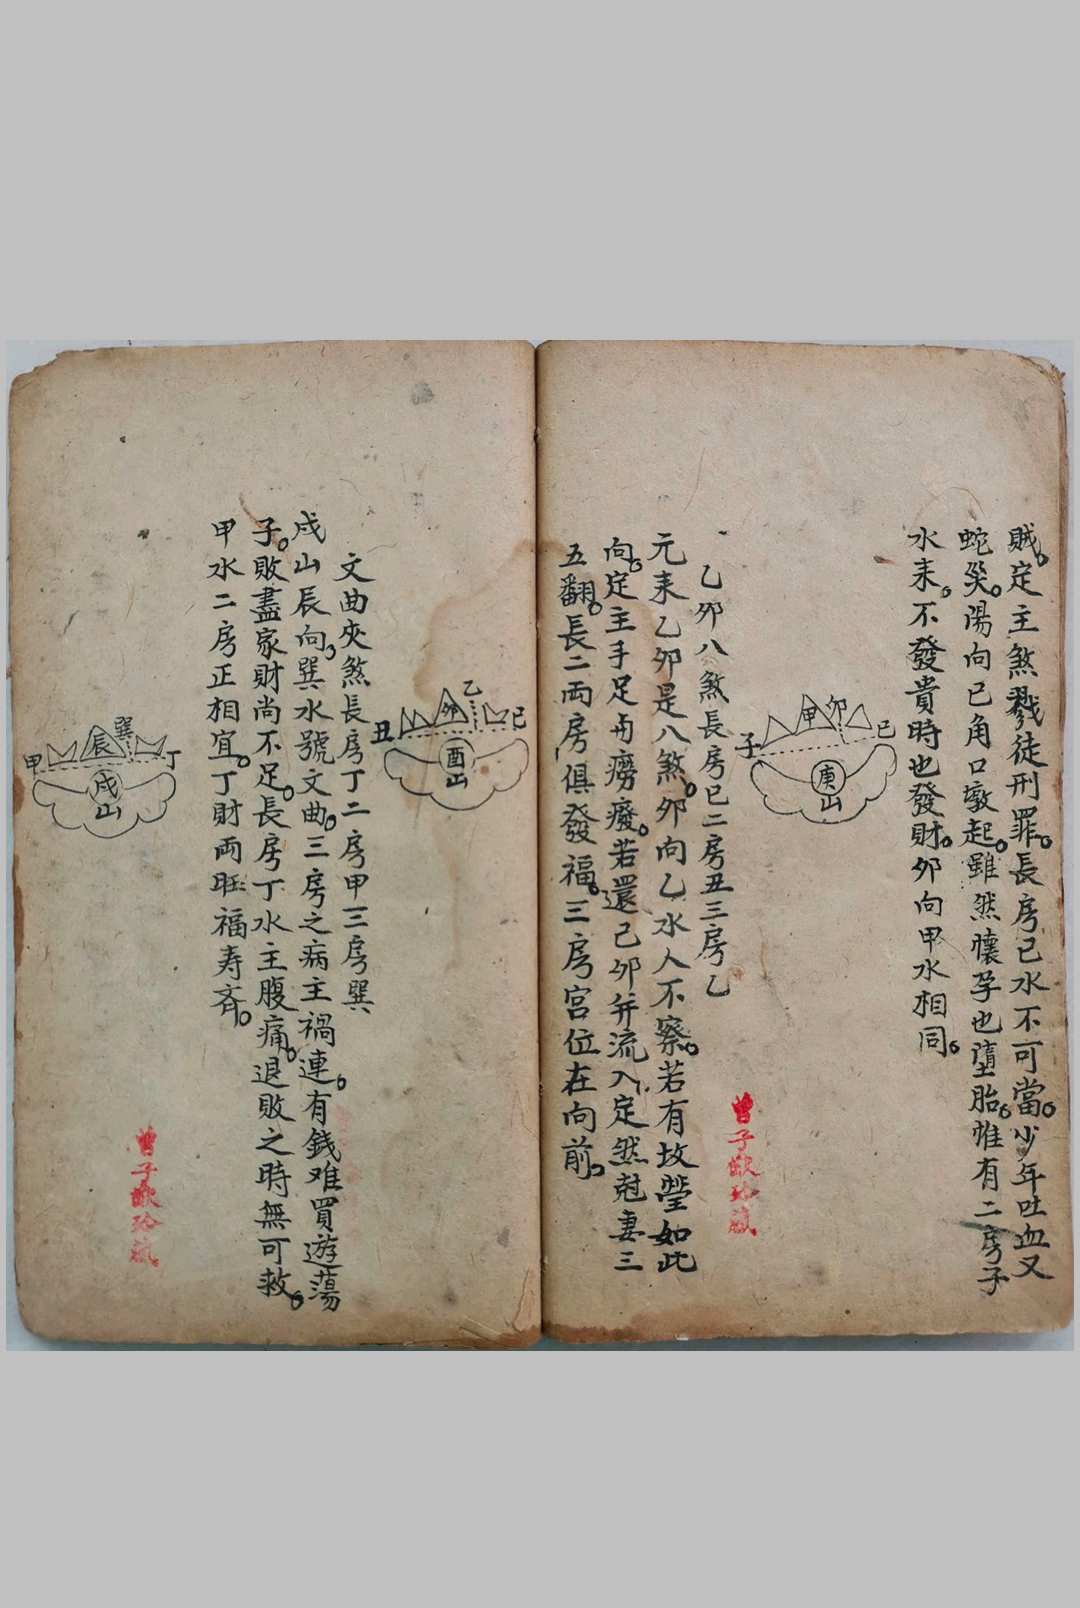 賊定主煞戮徒刑罪長房巳水不可當少年吐血又
蛇災陽向巳角口墩起雖然懷孕也墮胎惟有二房子
水来不發貴時也發財卯向甲水相同
子 甲 卯 巳
庚山
乙卯八煞長房巳二房丑三房乙
元来乙卯是八煞卯向乙水人不察若有坟瑩如此
向定主手足冉癆癈若還己卯并流入定然尅妻三
五翻長二両房俱發福三房宮位在向前
丑 卯 乙 巳
酉山
文曲夾煞長房丁二房甲三房巽
戌山辰向巽水號文曲三房之病主禍連有錢难買遊蕩
子敗盡家財尚不足長房丁水主腹痛退敗之時無可救
甲水二房正相宜丁財両旺福寿斉
甲 辰 巽 丁
戌山
曾子歐珍藏
曾子歐珍藏